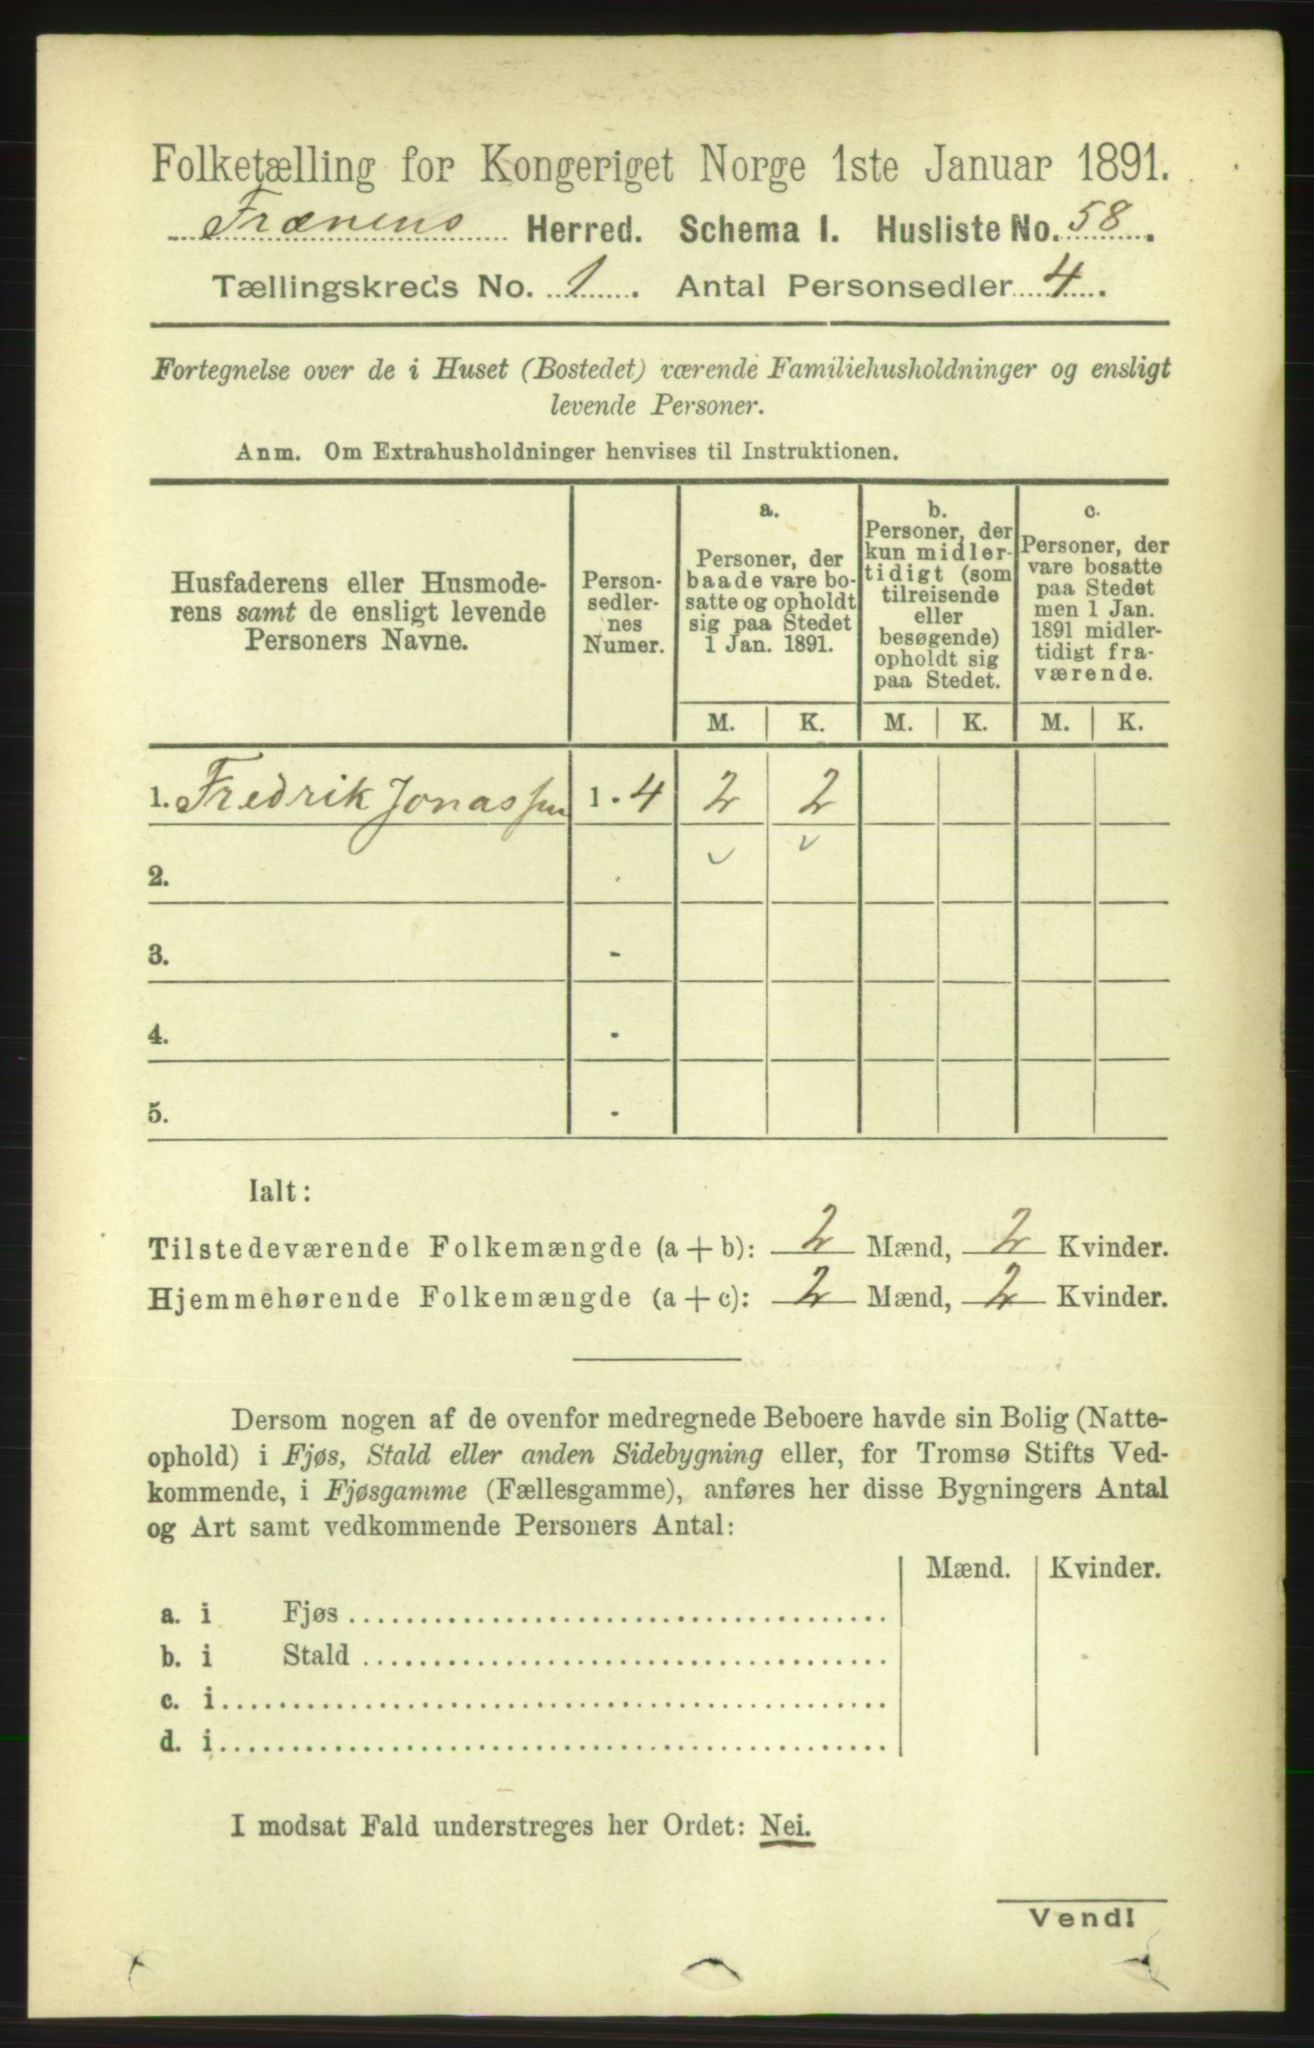 Folketælling for Kongeriget Norge 1ste Januar 1891.
Frænens Herred. Schema 1. Husliste No. 58.
Tællingskreds No. 1. Antal Personsedler 4.
Fortegnelse over de i Huset (Bostedet) værende Familiehusholdninger og ensligt
levende Personer.
Anm. Om Extrahusholdninger henvises til Instruktionen.
Husfaderens eller Husmode-
rens samt de ensligt levende
Personers Navne.
Person-
sedler-
nes
Numer.
a.
Personer, der
baade vare bo-
satte og opholdt
sig paa Stedet
1 Jan. 1891.
b.
Personer, der
kun midler-
tidigt (som
tilreisende
eller
besøgende)
opholdt sig
paa Stedet.
c.
Personer, der
vare bosatte
paa Stedet
men 1 Jan.
1891 midler-
tidigt fra-
værende.
M. K. M. K. M. K.
1. Fredrik Jonassen 1 - 4 2 2
2. -
3. -
4. -
5. -
Ialt:
Tilstedeværende Folkemængde (a + b): 2 Mænd, 2 Kvinder.
Hjemmehørende Folkemængde (a + c): 2 Mænd, 2 Kvinder.
Dersom nogen af de ovenfor medregnede Beboere havde sin Bolig (Natte-
ophold) i Fjøs, Stald eller anden Sidebygning eller, for Tromsø Stifts Ved-
kommende, i Fjøsgamme (Fællesgamme), anføres her disse Bygningers Antal
og Art samt vedkommende Personers Antal:
Mænd. Kvinder.
a. i Fjøs
b. i Stald
c. i
d. i
I modsat Fald understreges her Ordet: Nei.
Vend!